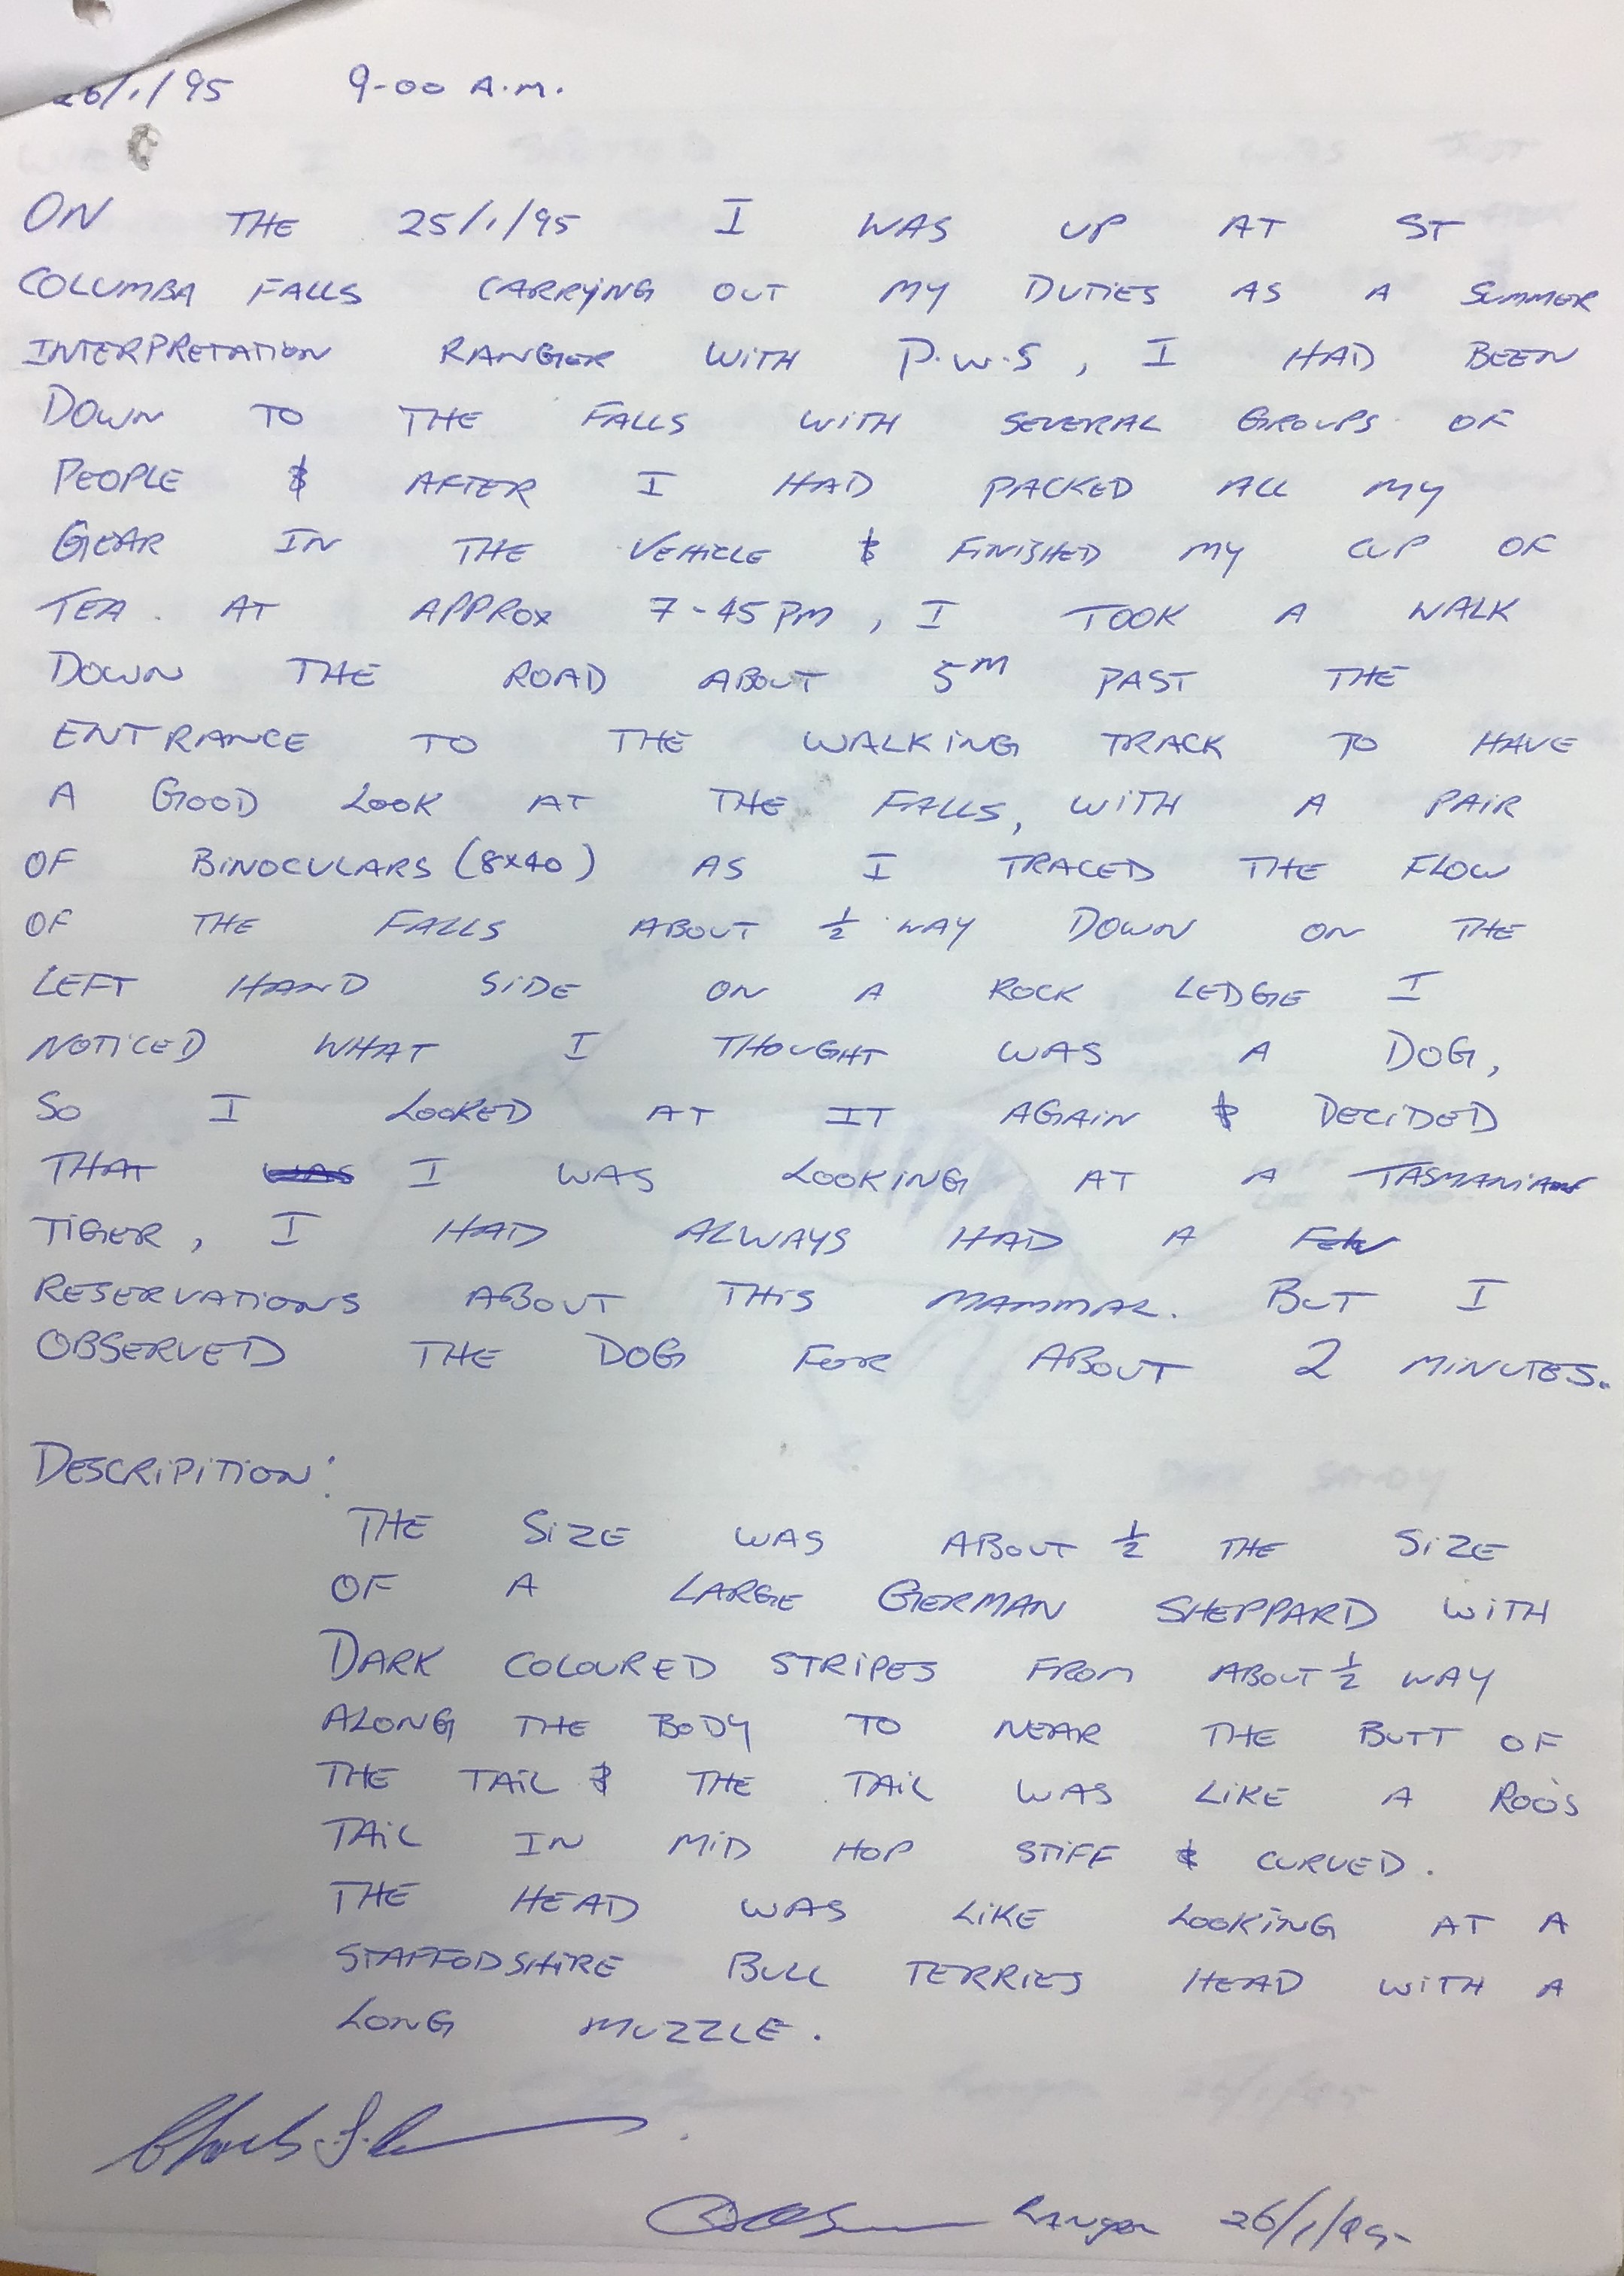 26/1/95 9-00 A.M.
ON THE 25/1/95 I WAS UP AT ST
COLUMBA FALLS CARRYING OUT MY DUTIES AS A SUMMER
INTERPRETATION RANGER WITH P.W.S, I HAD BEEN
DOWN TO THE FALLS WITH SEVERAL GROUPS OF
PEOPLE & AFTER I HAD PACKED ALL MY
GEAR IN THE VEHICLE & FINISHED MY CUP OF
TEA. AT APPROX 7-45 PM, I TOOK A WALK
DOWN THE ROAD ABOUT 5M PAST THE
ENTRANCE TO THE WALKING TRACK TO HAVE
A GOOD LOOK AT THE FALLS, WITH A PAIR
OF BINOCULARS (8x40) AS I TRACED THE FLOW
OF THE FALLS ABOUT ½ WAY DOWN ON THE
LEFT HAND SIDE ON A ROCK LEDGE I
NOTICED WHAT I THOUGHT WAS A DOG,
SO I LOOKED AT IT AGAIN & DECIDED
THAT WAS I WAS LOOKING AT A TASMANIAN
TIGER, I HAD ALWAYS HAD A FEW
RESERVATIONS ABOUT THIS MAMMAL. BUT I
OBSERVED THE DOG FOR ABOUT 2 MINUTES.
DESCRIPITION:
THE SIZE WAS ABOUT ½ THE SIZE
OF A LARGE GERMAN SHEPPARD WITH
DARK COLOURED STRIPES FROM ABOUT ½ WAY
ALONG THE BODY TO NEAR THE BUTT OF
THE TAIL & THE TAIL WAS LIKE A ROO'S
TAIL IN MID HOP STIFF & CURVED.
THE HEAD WAS LIKE LOOKING AT A
STAFFODSHIRE BULL TERRIES HEAD WITH A
LONG MUZZLE.
Ranger 26/1/95